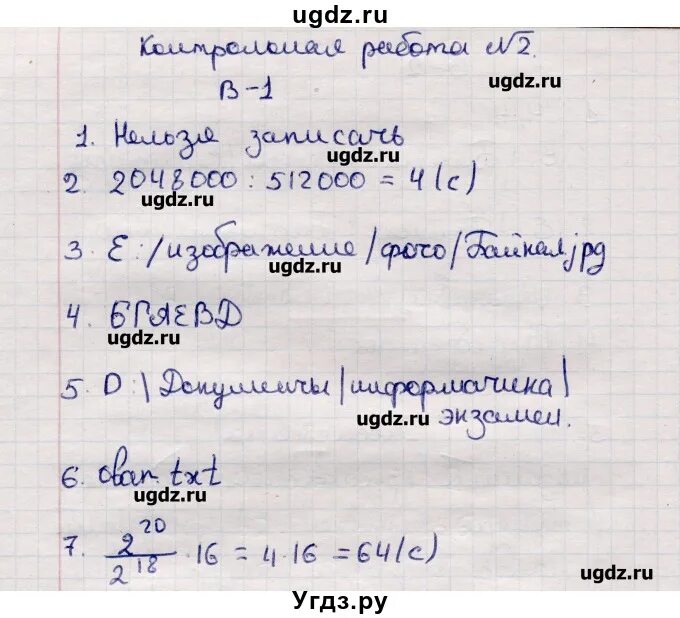 ugdz.ru
Контрольная работа №2.
ugdz.ru
В-1
1. Нельзя записать
ugdz.ru
2. 2048000 : 512000 = 4 (с)
ugdz.ru
3. E:/изображение/фото/Байкал.jpg
ugdz.ru
4. БГАЕВД
ugdz.ru
5. D:\Документы\информатика\
ugdz.ru экзамен.
6. txt
ugdz.ru
7. 2^20/2^18 · 16 = 4·16 = 64 (с)
ugdz.ru
Угдз.ру